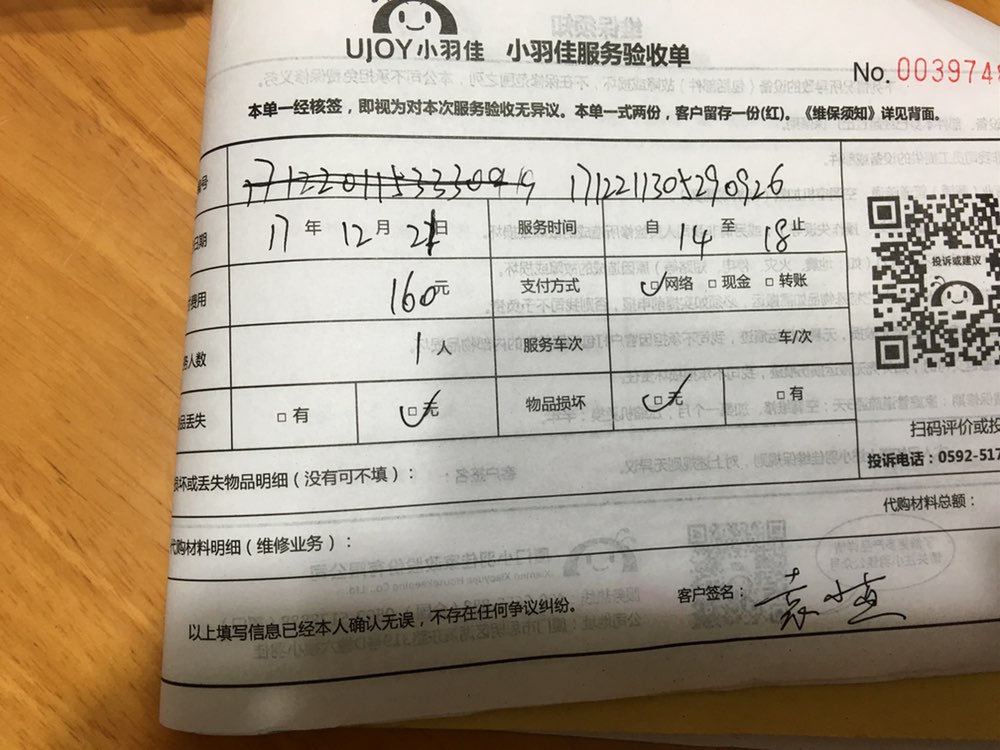 UJOY小羽佳 小羽佳服务验收单
No. 003974
本单一经核签，即视为对本次服务验收无异议。本单一式两份，客户留存一份(红)。《维保须知》详见背面。
号 1712211305290926
日期 17 年 12 月 21 日 服务时间 自 14 至 18 止
费用 160 元 支付方式 网络 现金 转账
人数 1 人 服务车次 车/次
品丢失 有 无 物品损坏 无 有
投诉或建议
扫码评价或投
投诉电话：0592-517
损坏或丢失物品明细（没有可不填）：
代购材料总额：
代购材料明细（维修业务）：
客户签名：
以上填写信息已经本人确认无误，不存在任何争议纠纷。